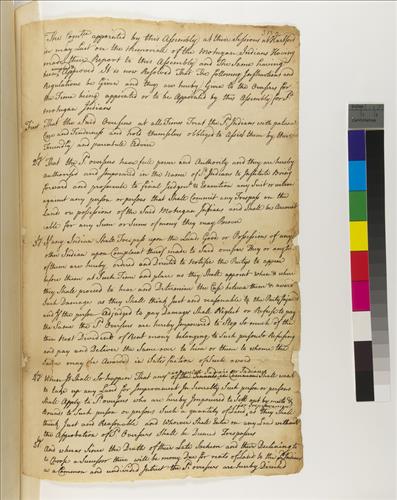 The Comtee appointed by this Assembly at their Sessions at Hartford
in may last on the Memorial of the Mohegan Indians Having
made their Report to this Assembly and the Same having
being Approved It is now Resolved That the following Instructions and
Regulations be Given and they are hereby Given to the Overseers for
the Time being appointed or to be Appointed by this Assembly for Sd
mohegan Indians
First That the Said Overseers at all Times Treat the Sd Indians with
Care and Tenderness and hold themselves obliged to Assist them by their
Friendly and parental Advice
2d That the Sd Overseers have full power and Authority and they are hereby
authorised and Impowered in the name of Sd Indians to Institute Bring
forward and prosecute to final Judgmt & Execution any Suit or
against any person or persons that Shall Commit any Trespass on the
Land or possessions of the Said Mohegan Indians and Shall be Account
able for any Sum or Sums of money they may Recover
3d If any Indian Shall Trespass upon the Land Goods or Possessions of any
other Indian upon Complaint thereof made to Said Overseers They or any
of them are hereby ordered and Directed to Notifie the Parties to appear
before them at Such Time and place as they Shall appoint when & where
they Shall proceed to hear and Determine the Case between them & award
Such Damage as they Shall think Just and reasonable to the Party Injured
and if the person Adjudged to pay Damages Shall Neglect or Refuse to pay
the Same the Sd Overseers are hereby Impowered to Stop So much of the
then next Dividend of Rent money belonging to Such person So Refusing
and pay and Deliver the Same over to him or them to whom the
Same may be Awarded in Satisfaction of Such award
4th When It Shall So happen That any Indian or Indians
of the Tenants in Common Shall want
to take up any Land for Improvement In Severalty Such person or persons
Shall Apply to Sd Overseers who are hereby Impowered to Sett out by meets &
Bounds to Such person or persons Such a quantity of Land as they Shall
think Just and Reasonable and Whoever Shall Enter on any Land without
the Approbation of Sd Overseers Shall be Deemed Trespassers
5th And whereas Since the Death of their Late Sachem and their Declining to
to Choose a Successor there will be money Due for rents of Land to the Sd Indians
as a Common and undivided Interest the Sd overseers are hereby Directed